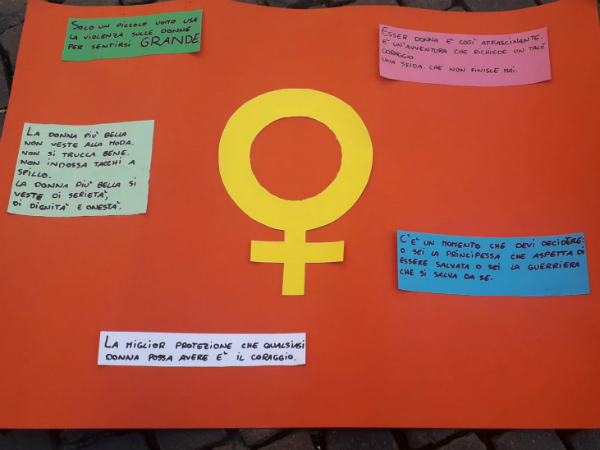 SOLO UN PICCOLO UOMO USA
LA VIOLENZA SULLE DONNE
PER SENTIRSI GRANDE
ESSER DONNA E' COSÌ AFFASCINANTE.
E' UN'AVVENTURA CHE RICHIEDE UN TALE
CORAGGIO.
UNA SFIDA. CHE NON FINISCE MAI.
LA DONNA PIU' BELLA
NON VESTE ALLA MODA.
NON SI TRUCCA BENE.
NON INDOSSA TACCHI A
SPILLO.
LA DONNA PIU' BELLA SI
VESTE DI SERIETA',
DI DIGNITA' E ONESTA'.
C'E' UN MOMENTO CHE DEVI DECIDERE:
O SEI LA PRINCIPESSA CHE ASPETTA DI
ESSERE SALVATA O SEI LA GUERRIERA
CHE SI SALVA DA SE.
LA MIGLIOR PROTEZIONE CHE QUALSIASI
DONNA POSSA AVERE E' IL CORAGGIO.